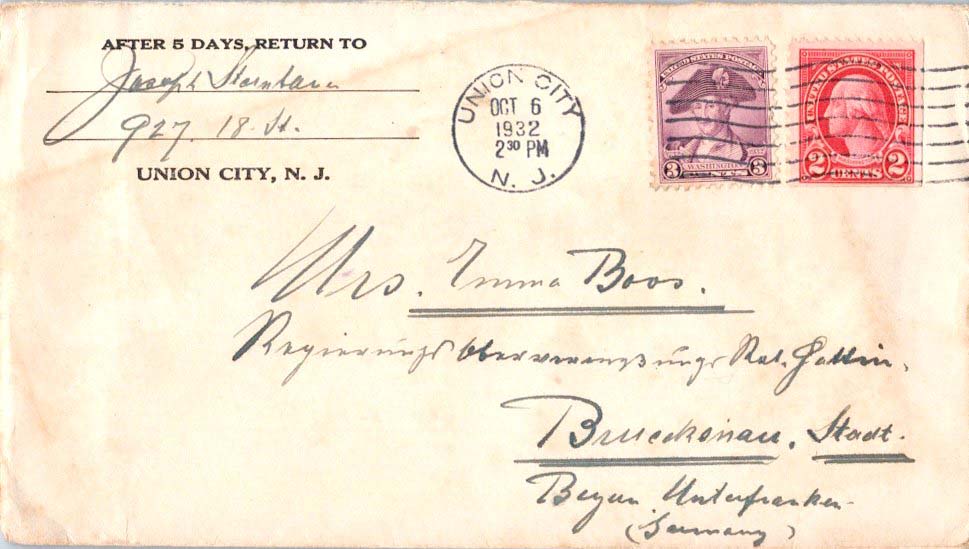 AFTER 5 DAYS, RETURN TO
Joseph
927, 18. St.
UNION CITY, N. J.
UNION CITY
OCT 6
1932
2³⁰ PM
N. J.
UNITED STATES POSTAGE
3 WASHINGTON 3
CENTS
UNITED STATES POSTAGE
2 CENTS 2
Mrs. Emma Boos.
Regierungs Rat. Gattin,
Brueckenau, Stadt.
Bayern Unterfranken
(Germany)